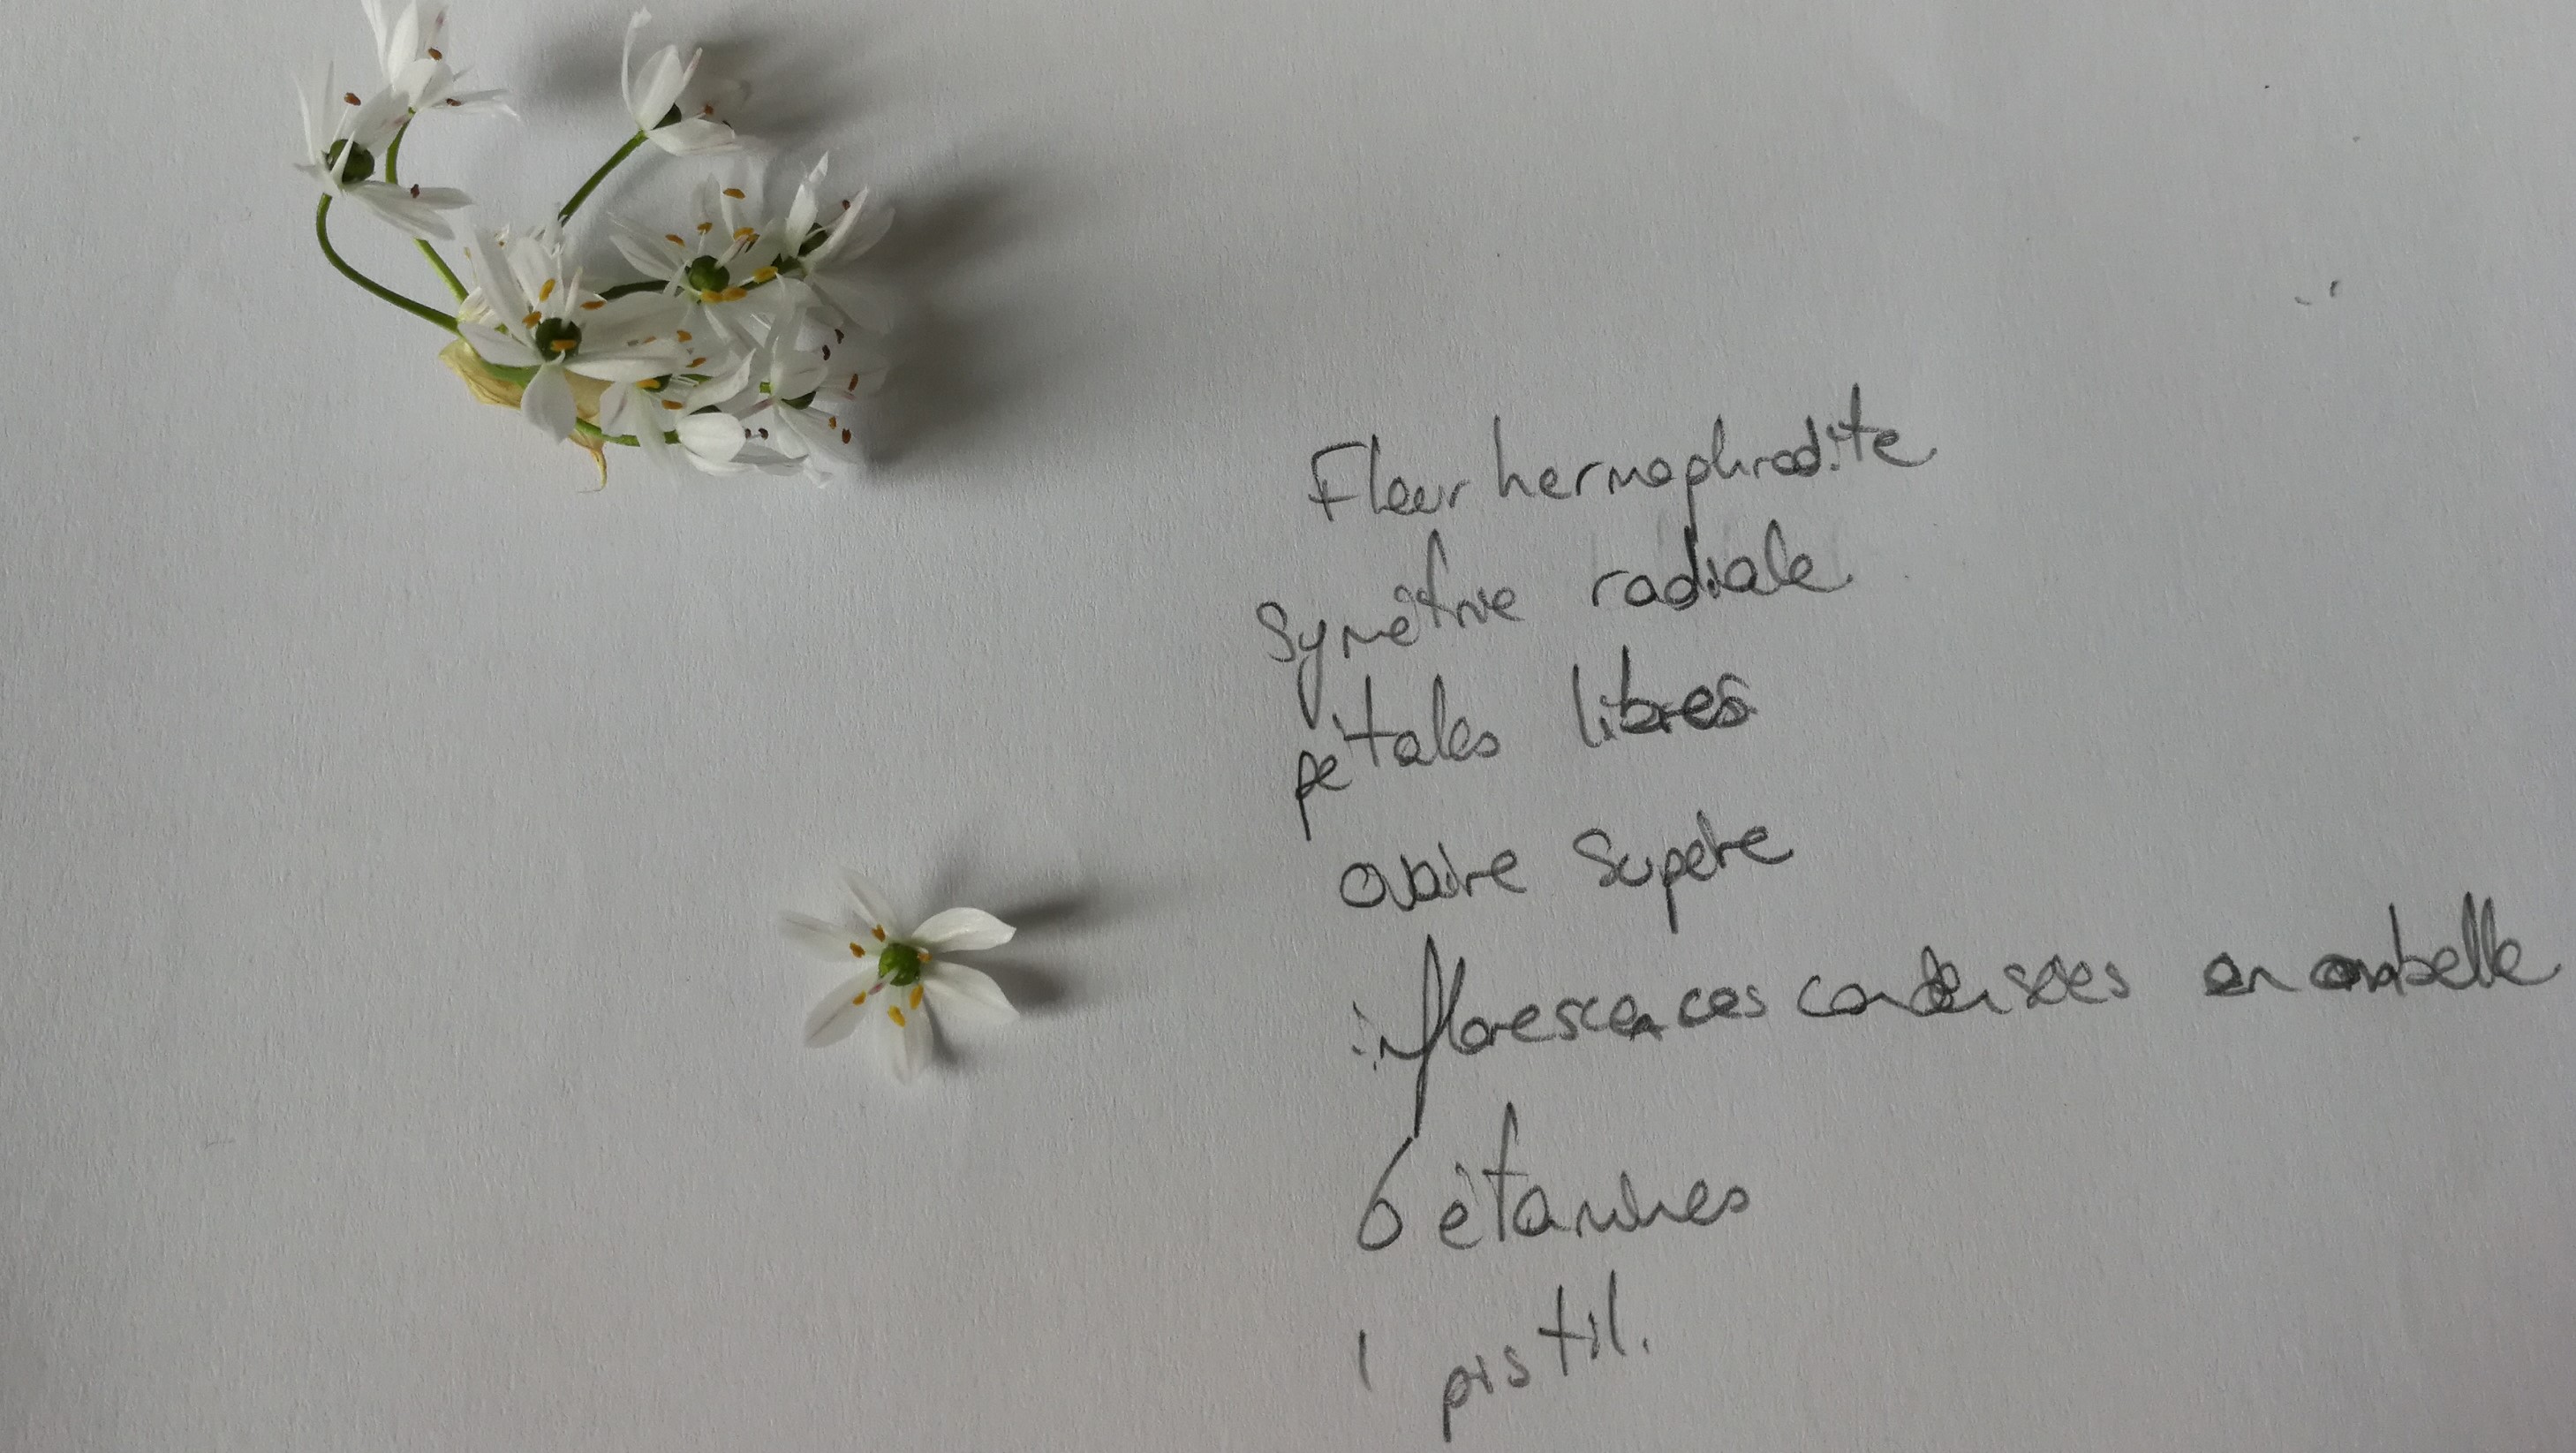 Fleur hermaphrodite
Symétrie radiale
pétales libres
ovaire supère
inflorescences condensées en ombelle
6 étamines
1 pistil.